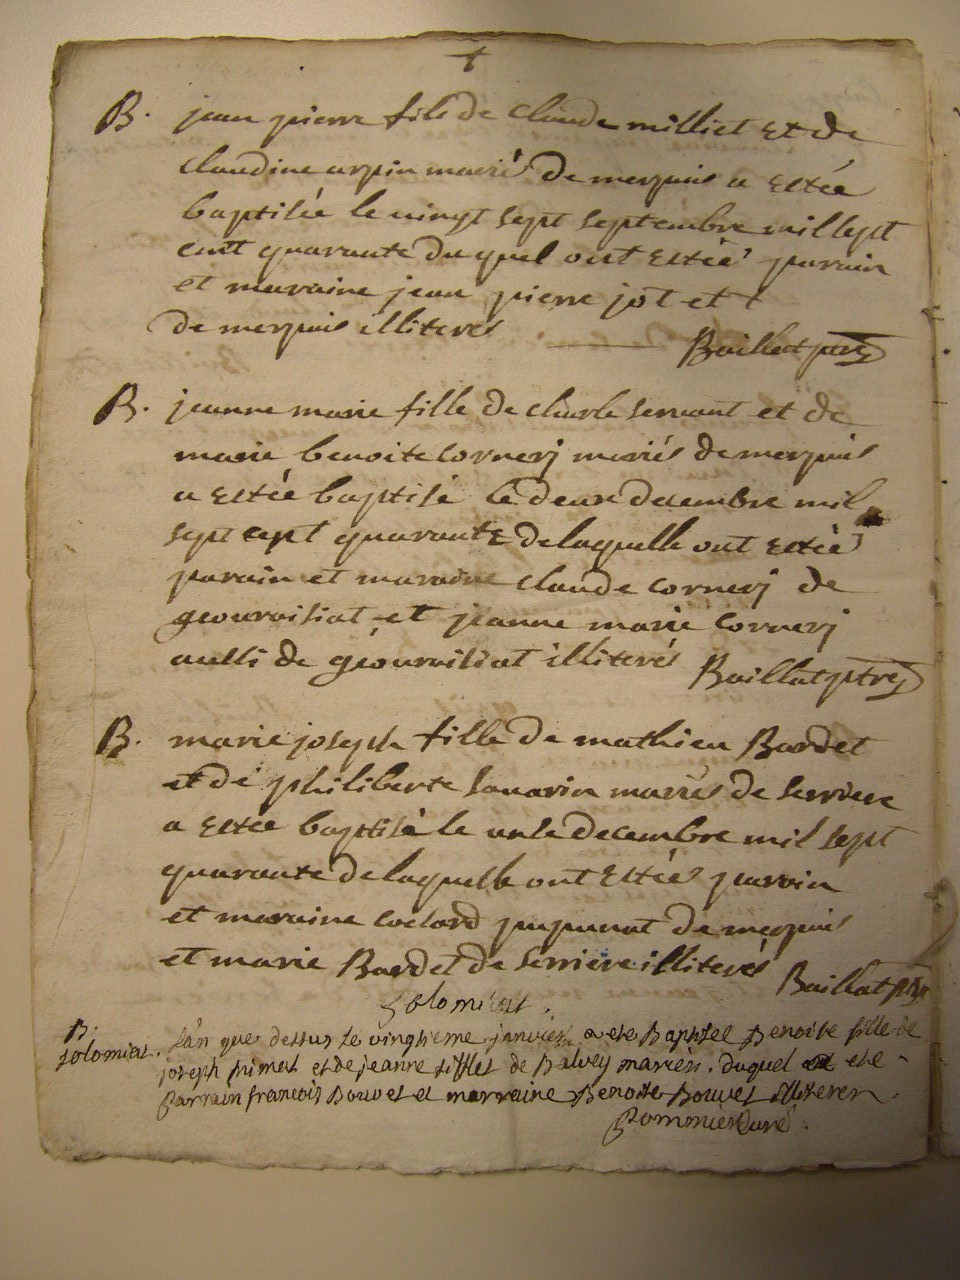 B. jean pierre fils de claude milliet et de
claudine arpin mariés de merpuis a estée
baptisée le vingt sept septembre mil sept
cent quarante du quel ont estéé parain
et maraine jean pierre jot et +
de merpuis illiterés
Baillat ptre
B. jeanne marie fille de charle servant et de
marie benoite cornerj mariés de merpuis
a estée baptisé le deux decembre mil
sept cent quarante de laquelle ont estéé
parain et maraine claude cornerj de
geovraisiat et jeanne marie cornerj
aussi de geovraisiat illiterés
Baillat ptre
B. marie joseph fille de mathieu Bardet
et de philiberte savarin mariés de serriere
a estée baptisé le unse decembre mil sept
quarante de laquelle ont estéés parain
et maraine pupunat de merpuis
et marie Bardet de serriere illiterés
Baillat ptre
Solomiat.
B. solomiat. l'an que dessus le vingtieme janvier a ete Baptisee Benoite fille de
joseph primat et de jeanne tifflet de Balvey mariés. duquel a ete
parrain francois Bouvet et marraine Benoite Bouvet illiteren.
Pommier curé.